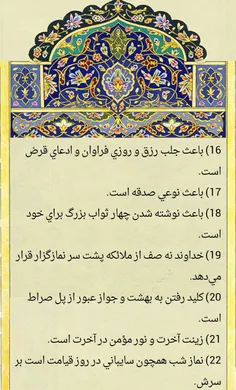 16) باعث جلب رزق و روزي فراوان و ادعاي قرض
است.
17) باعث نوعي صدقه است.
18) باعث نوشته شدن چهار ثواب بزرگ براي خود
است.
19) خداوند نه صف از ملائكه پشت سر نمازگزار قرار
مي‌دهد.
20) كليد رفتن به بهشت و جواز عبور از پل صراط
است.
21) زينت آخرت و نور مؤمن در آخرت است.
22) نماز شب همچون سايباني در روز قيامت است بر
سرش.